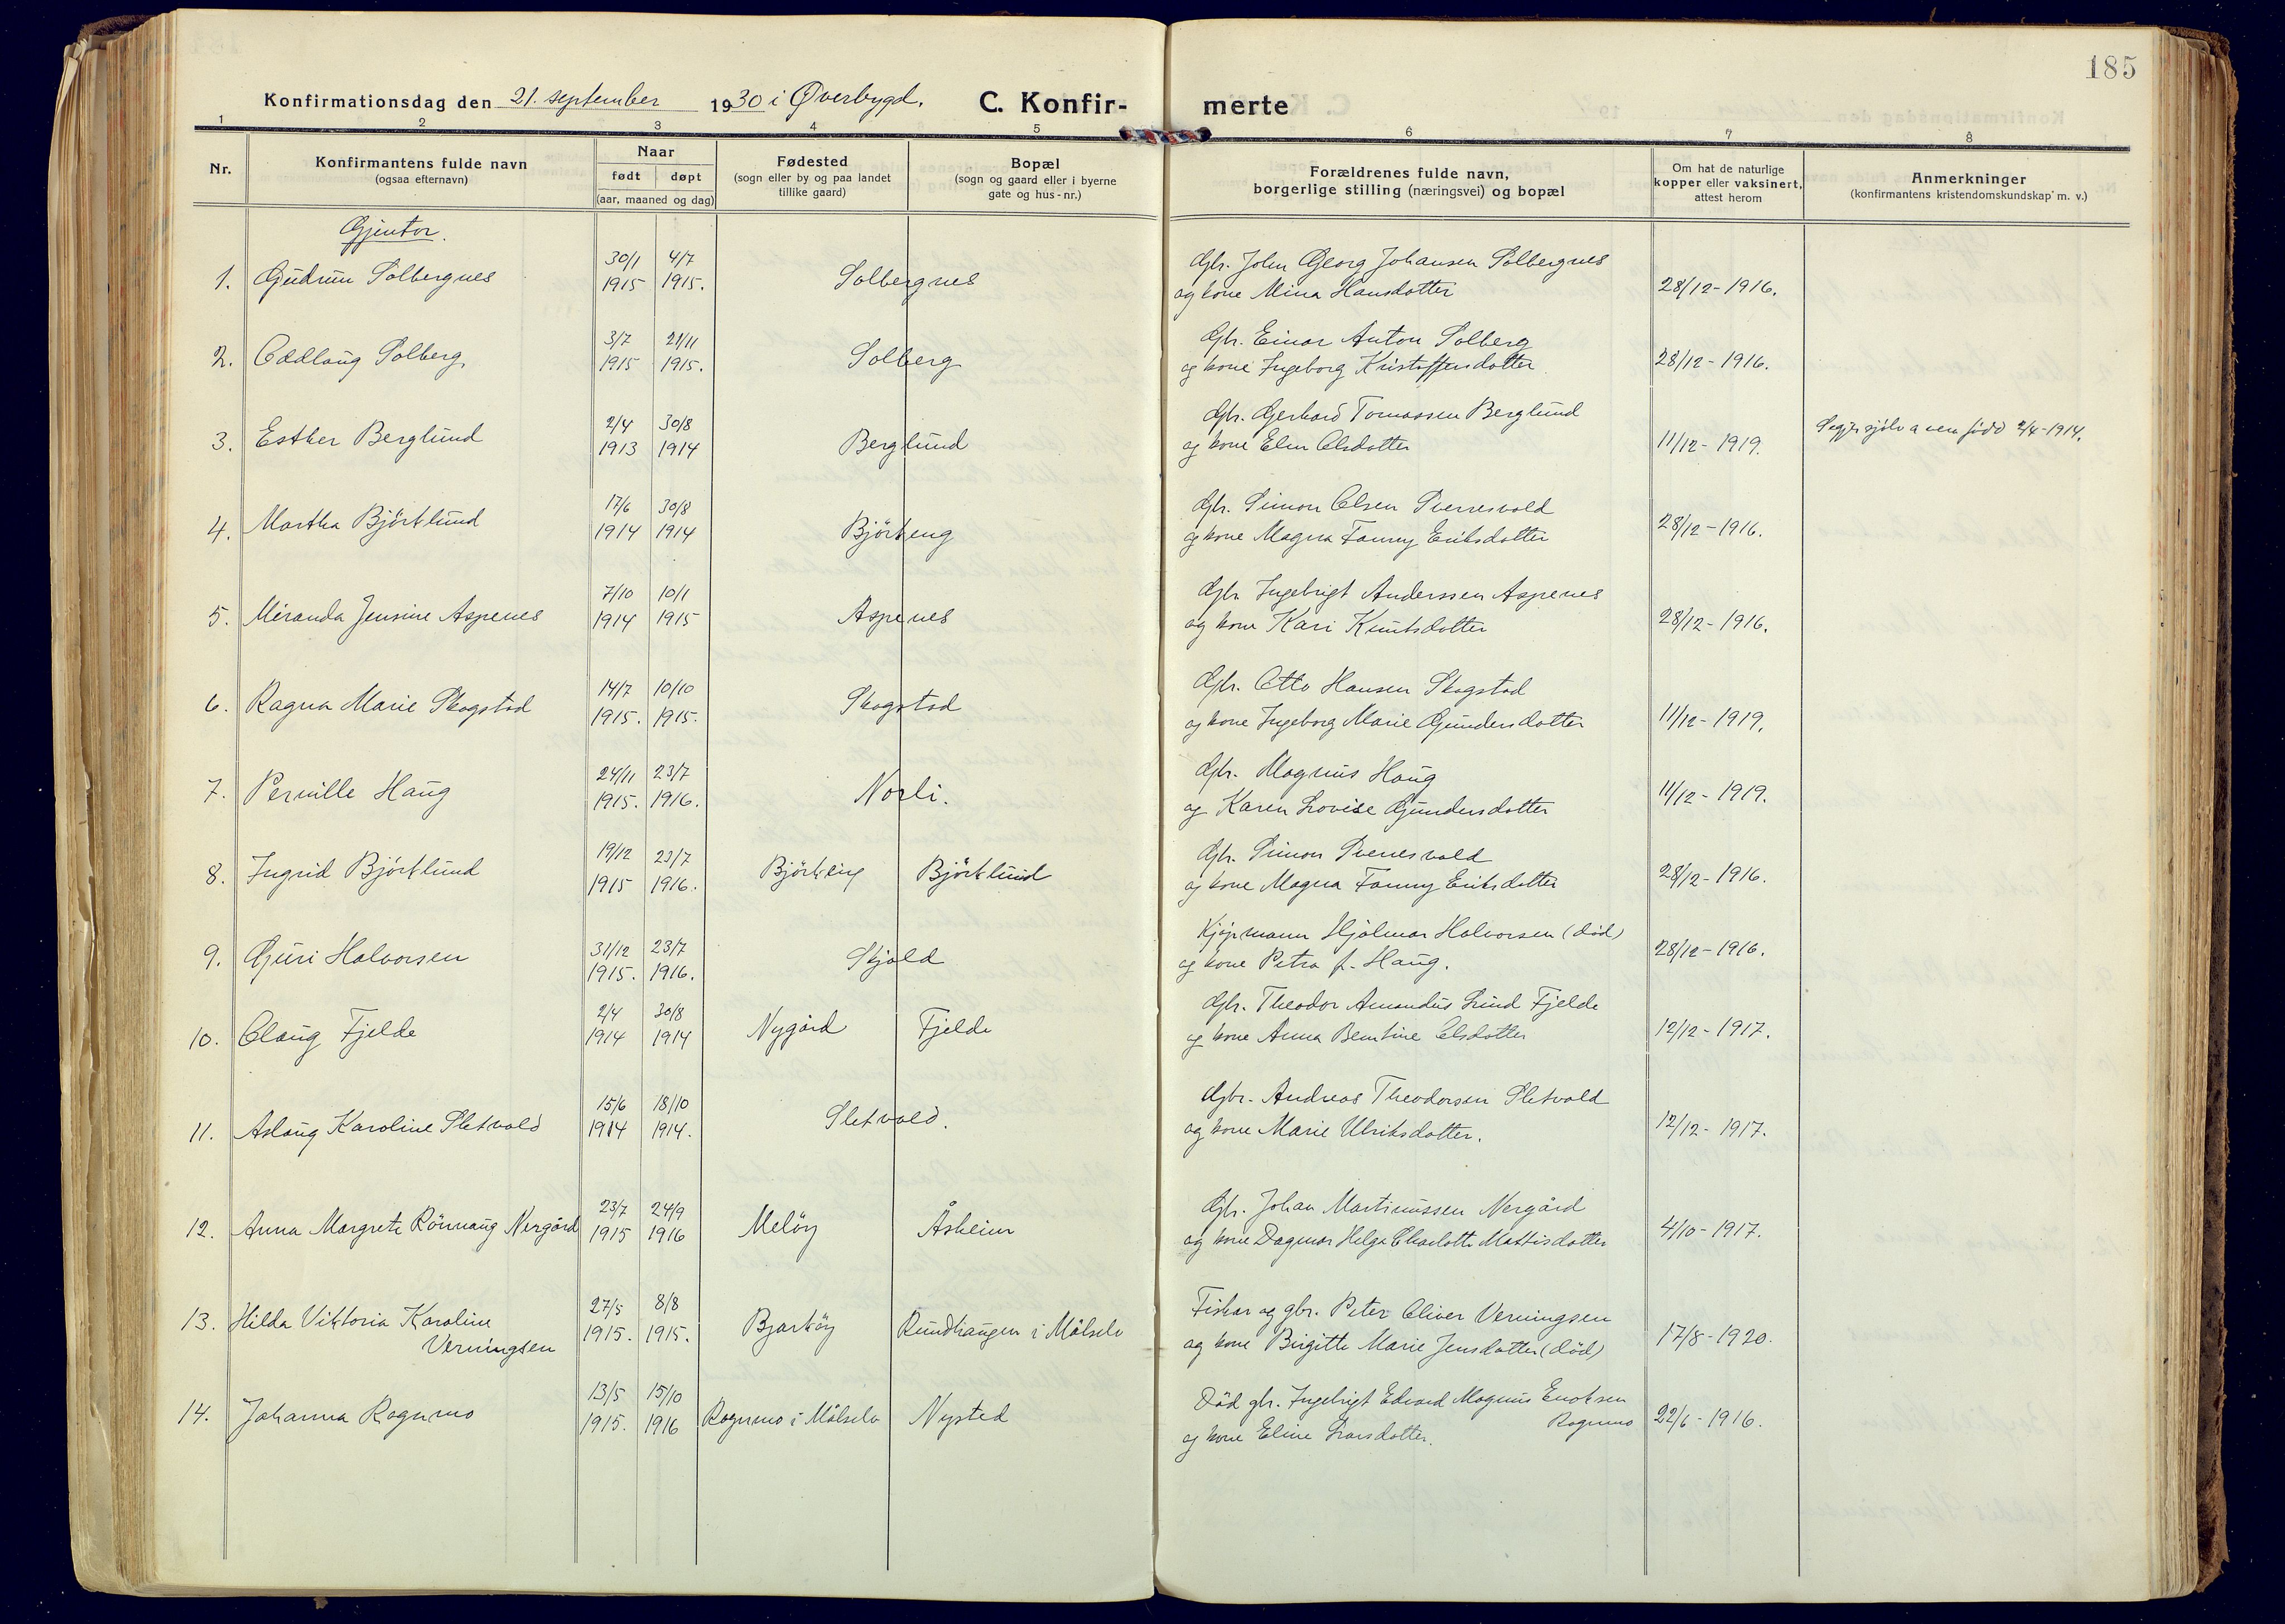 185
Konfirmationsdag den 21. september 1930 i Øverbygd. C. Konfir- merte
1 2 3 4 5 6 7 8
Nr.
Konfirmantens fulde navn
(ogsaa efternavn)
Naar
født døpt
(aar, maaned og dag)
Fødested
(sogn eller by og paa landet
tillike gaard)
Bopæl
(sogn og gaard eller i byerne
gate og hus-nr.)
Forældrenes fulde navn,
borgerlige stilling (næringsvei) og bopæl
Om hat de naturlige
kopper eller vaksinert,
attest herom
Anmerkninger
(konfirmantens kristendomskundskap m. v.)
Gjentor.
30/1 4/7 Gbr. John Georg Johansen Solbergnes
1. Gudrun Solbergnes 1915 1915. Solbergnes og kone Mina Hansdotter 28/12-1916.
3/7 21/11 Gbr. Einar Anton Solberg
2. Oddlaug Solberg 1915 1915. Solberg og kone Ingeborg Kristoffersdotter 28/12-1916.
2/4 30/8 Gbr. Gerhard Tomassen Berglund
3. Esther Berglund 1913 1914 Berglund og kone Elen Olsdotter 11/12-1919. Segjer sjølv a vera född 2/4-1914.
17/6 30/8 Gbr. Simon Olsen Sverresvold
4. Martha Björklund 1914 1914 Björkeng og kone Magna Fanny Eriksdotter 28/12-1916.
7/10 10/1 Gbr Ingebrigt Anderssen Aspenes
5. Miranda Jensine Aspenes 1914 1915 Aspenes og kone Kari Knutsdotter 28/12-1916.
14/7 10/10 Gbr. Otto Hansen Skogstad
6. Ragna Marie Skogstad 1915. 1915. Skogstad og kone Ingeborg Marie Gundersdotter 11/12-1919.
24/11 23/7 Gbr. Magnus Haug
7. Pernille Haug 1915. 1916. Norli. og Karen Lovise Gundersdotter 11/12-1919.
19/12 23/7 Gbr. Simon Sverresvold
8. Ingrid Björklund 1915 1916. Björkeng Björklund og kone Magna Fanny Eriksdotter 28/12-1916.
31/12 23/7 Kjöpmann Hjalmar Halvorsen (död)
9. Guri Halvorsen 1915. 1916. Skjold og kone Petra f. Haug. 28/12-1916.
2/4 30/8 Gbr. Theodor Amandus Lund Fjelde
10. Olaug Fjelde 1914 1914 Nygård Fjelde og kone Anna Bentine Olsdotter 12/12-1917.
15/6 18/10 Gbr. Andreas Theodorsen Sletvold
11. Aslaug Karoline Sletvold 1914 1914. Sletvold. og kone Marie Ulriksdotter. 12/12-1917.
23/7 24/9 Gbr. Johan Martinussen Nergård
12. Anna Margrete Rönnaug Nergård 1915 1916 Melöy Åsheim og kone Dagmar Helga Charlotte Mattisdotter 4/10-1917.
27/5 8/8 Fiskar og gbr. Peter Oliver Verningsen
13. Hilda Viktoria Karoline 1915. 1915. Bjarköy Rundhaugen i Målselv
Verningsen og kone Birgitte Marie Jensdotter (död) 17/8-1920.
13/5 15/10 Död gbr. Ingebrigt Edvard Magnus Enoksen
14. Johanna Rognmo 1915. 1916 Rognmo i Målselv Nysted Rognmo 22/6-1916.
og kone Eline Larsdotter.